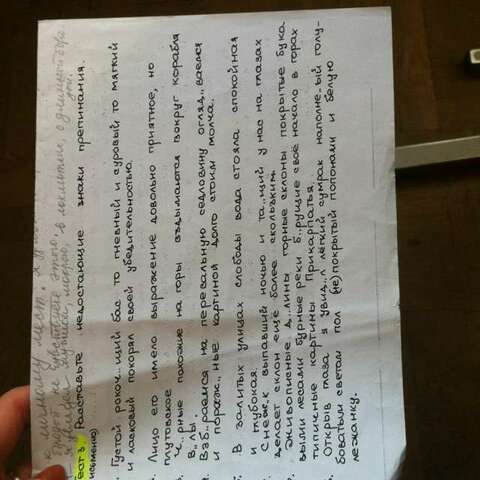 к
лист.
Расставьте недостающие знаки препинания.
Густой рокоч..щий бас то гневный и суровый то мягкий
и ласковый покорял своей убедительностью.
Лицо его имело выражение довольно приятное, но
плутовское
Ч..рные похожие на горы вздымаются вокруг корабля
в..лы.
Взб..раемся на перевальную седловину огляд..ваемся
и пораж..ные картиной долго стоим молча.
В залитых улицах слободы вода стояла спокойная
и глубокая.
Снеж..к выпавший ночью и та..щий у нас на глазах
делает склон ещё более скользким.
Живописные д..лины горные склоны покрытые бука
выми лесами бурные реки б..рущие своё начало в горах
типичные картины Прикарпатья.
Открыв глаза я увид..л лёгкий сумрак наполне..ый голу-
боватым светом пол (не)покрытый попонами и белую
лежанку.